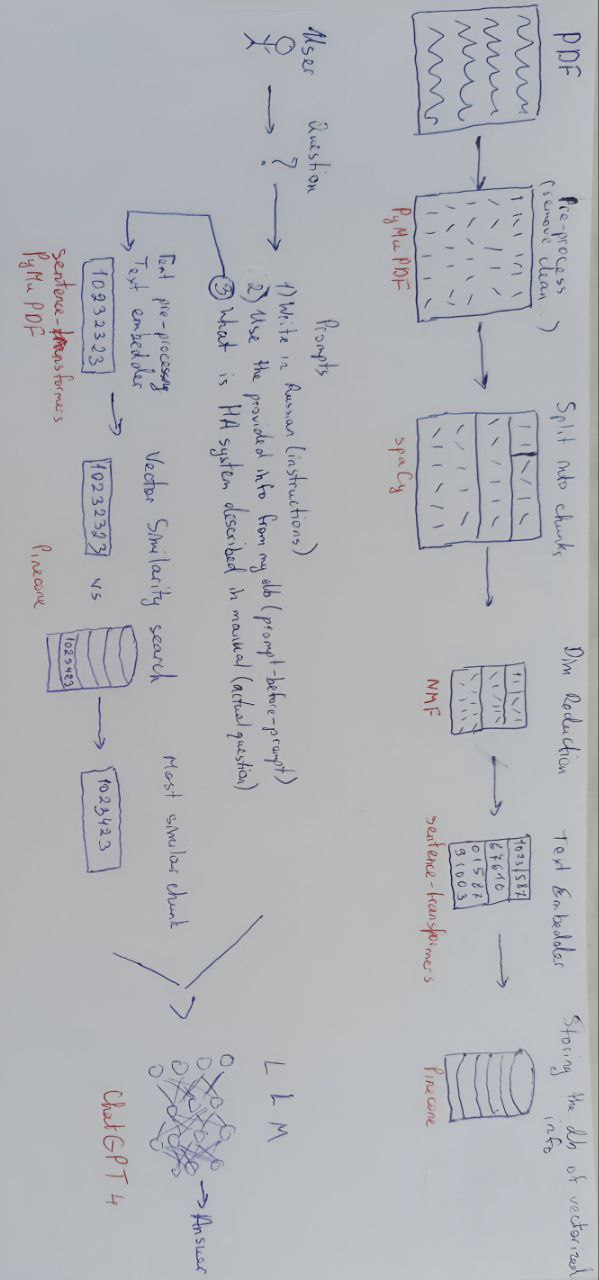 PDF
Pre-process
(remove clean...)
Split into chunks
Dim Reduction
Text Embedder
Storing the db of vectorized
info
1023 587
67610
01587
91003
PyMuPDF
spaCy
NMF
sentence-transformers
Pinecone
User
Question
?
Prompts
1) Write in Russian (instructions)
2) Use the provided info from my db (prompt-before-prompt)
3 What is HA system described in manual (actual question)
LLM
Answer
ChatGPT 4
Text pre-processing
Text embedder
10232323
sentence-transformers
PyMuPDF
Vector Similarity search
10232323 vs
1023423
Pinecone
Most similar chunk
1023423